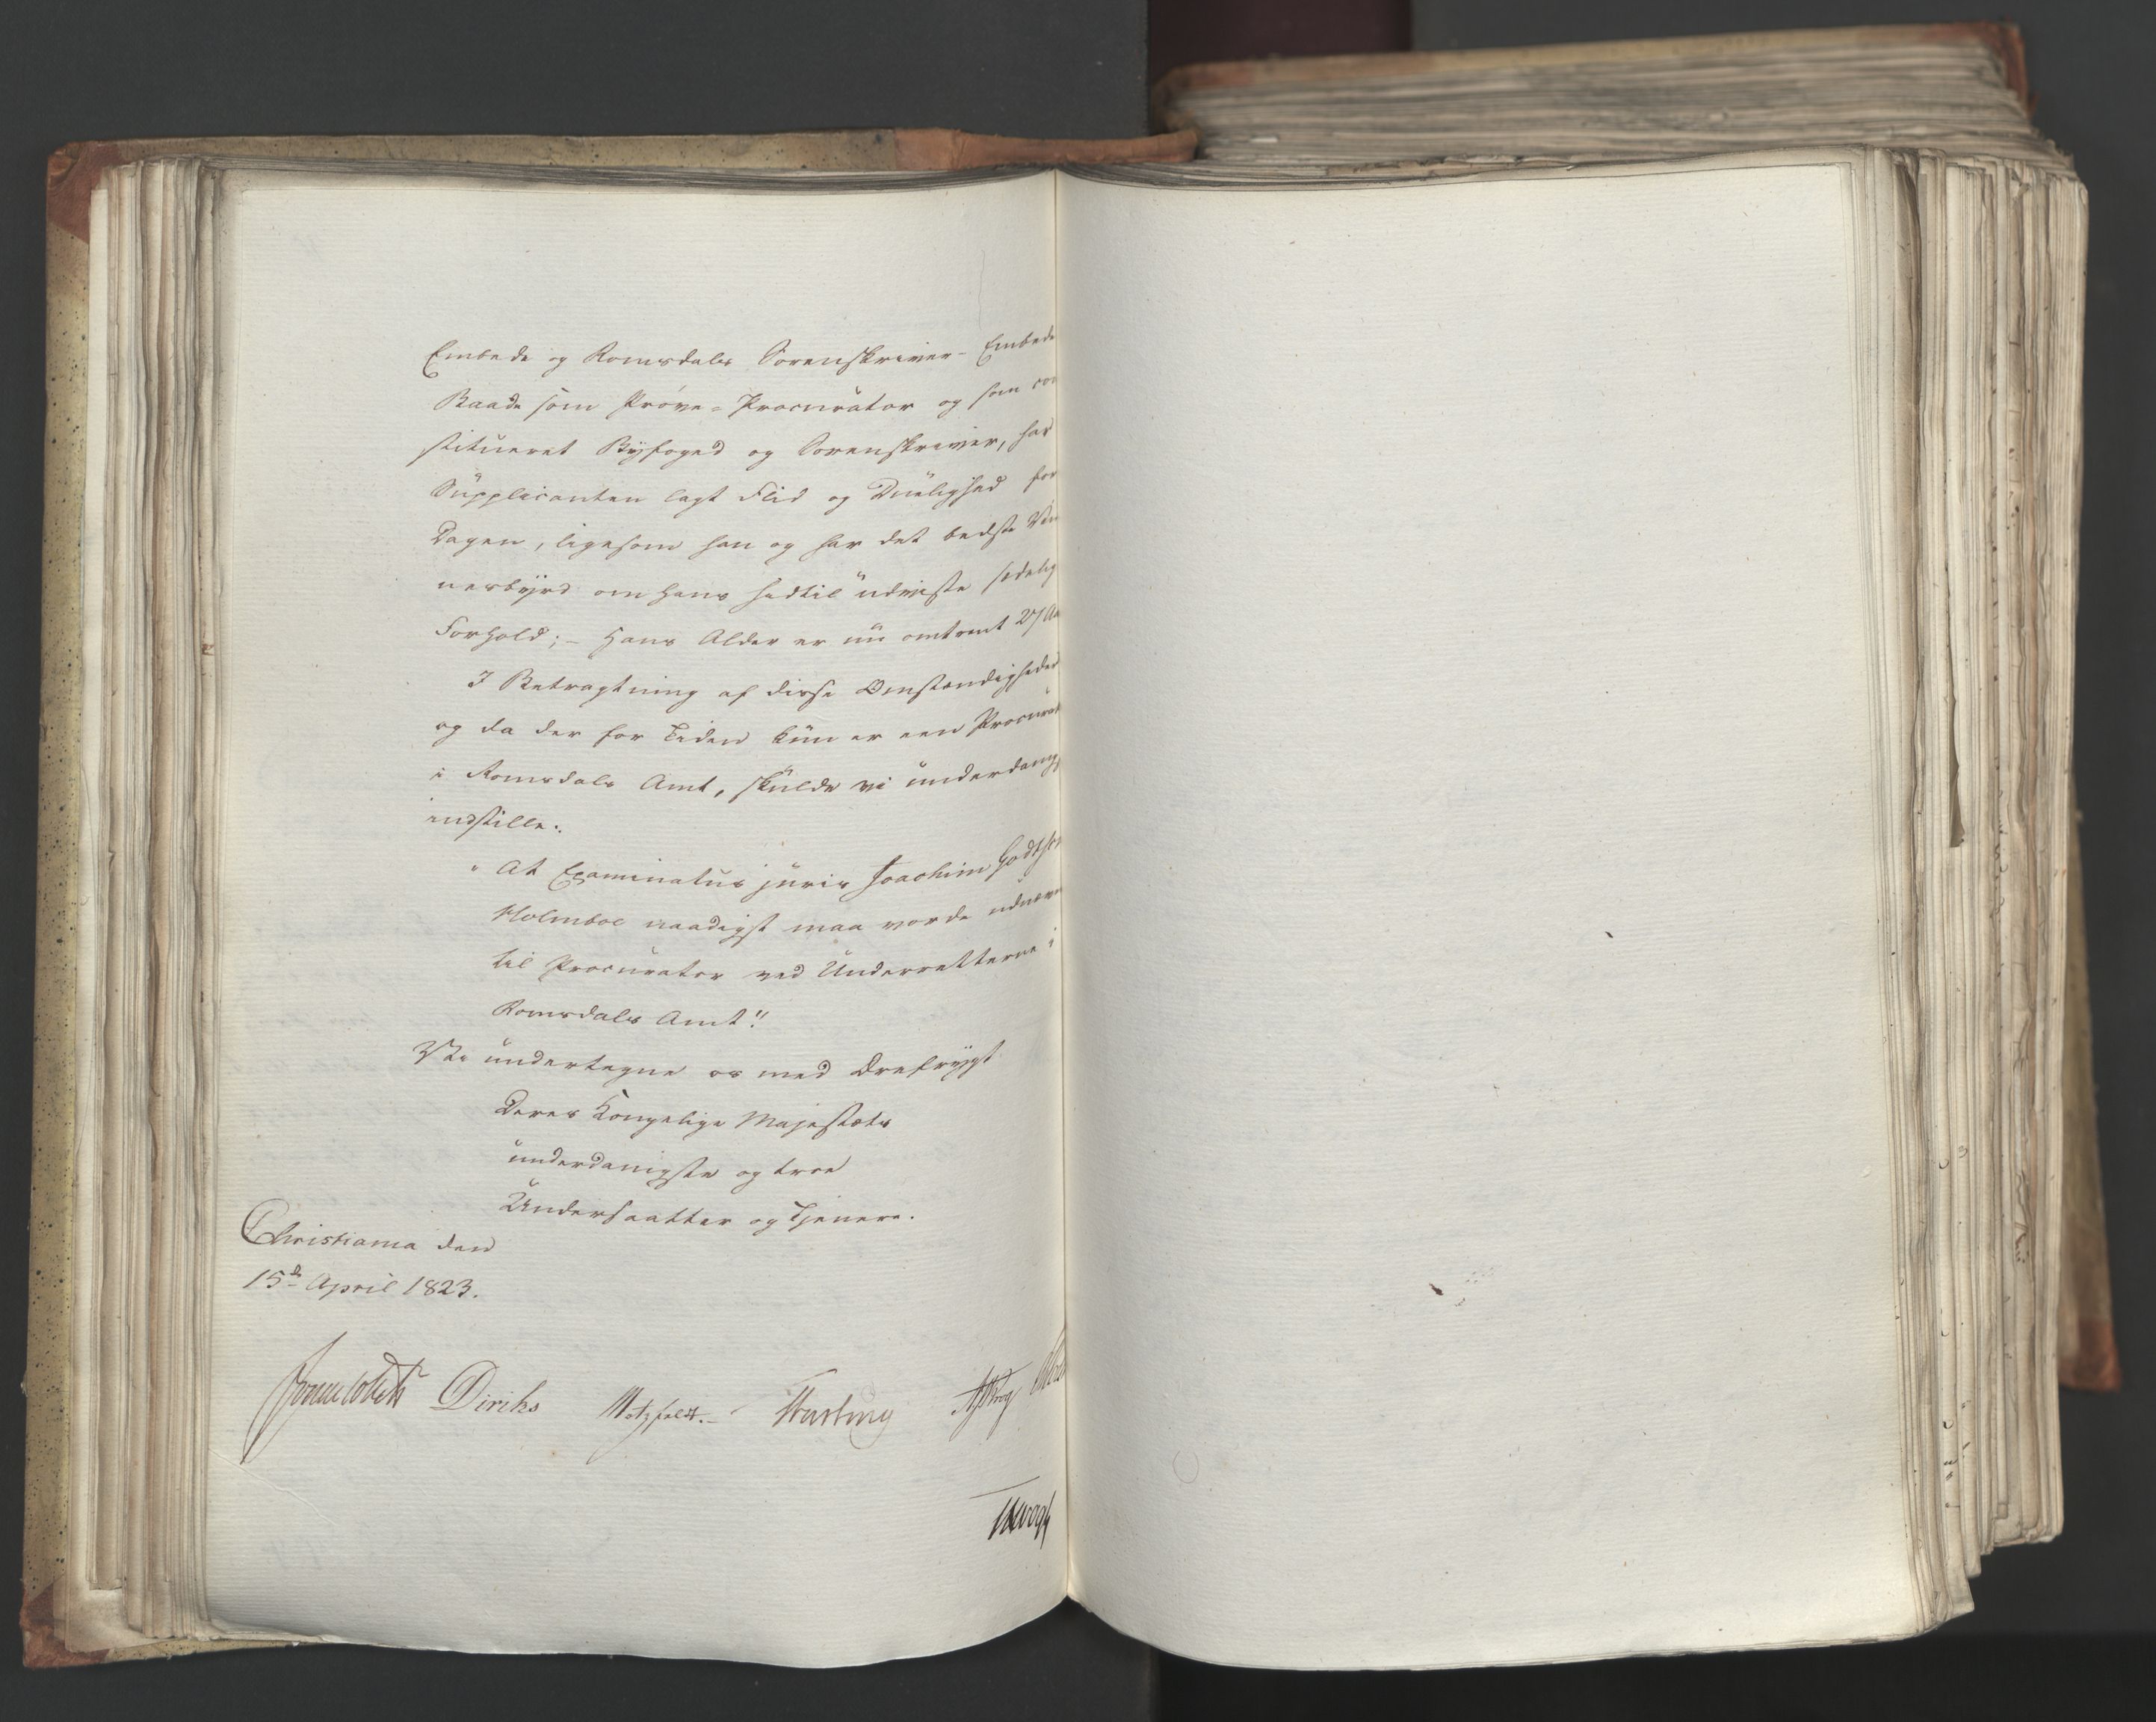 Embede og Romsdals Sorenskriver-Embede
Baade som Prøve-Procurator og som con
stitueret Byfoged og Sorenskriver, har
Supplicanten lagt Flid og Duelighed for
Dagen, ligesom han og har det bedste Vid
nesbyrd om hans hidtil udviste sædelig
Forhold; - Hans Alder er nu omtrent 27 Aa
I Betragtning af disse Omstændigheder
og da der for Tiden kun er een Procurat
i Romsdals Amt, skulde vi underdanig
indstille:
"At Examinatus juris Joachim Godsk
Holmboe naadigst maa vorde udnævn
til Procurator ved Underretterne i
Romsdals Amt"
Vi undertegne os med Ærefrygt
Deres Kongelige Majestæts
underdanigste og troe
Undersaatter og Tjenere.
Christiania den
15de April 1823.
Sommerhielm Diriks Motzfeldt. Krog